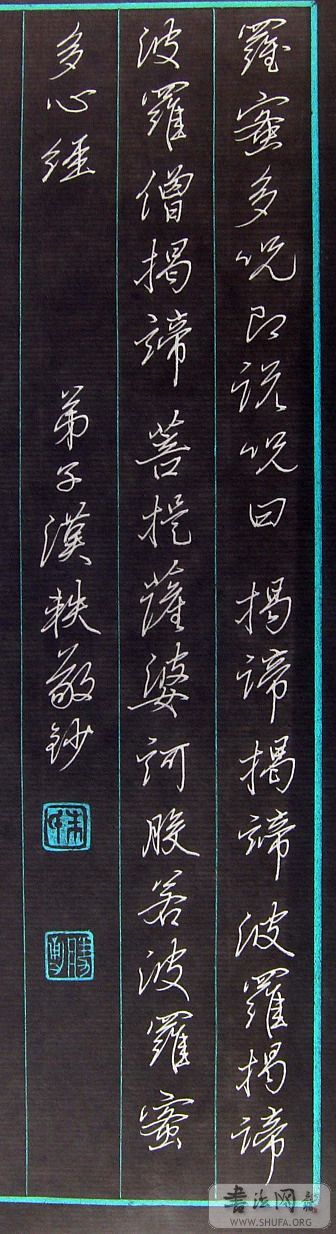 羅蜜多咒即說咒曰 揭諦揭諦波羅揭諦
波羅僧揭諦 菩提薩婆訶般若波羅蜜
多心經
弟子漢軼敬鈔
書法网
WWW.SHUFA.ORG